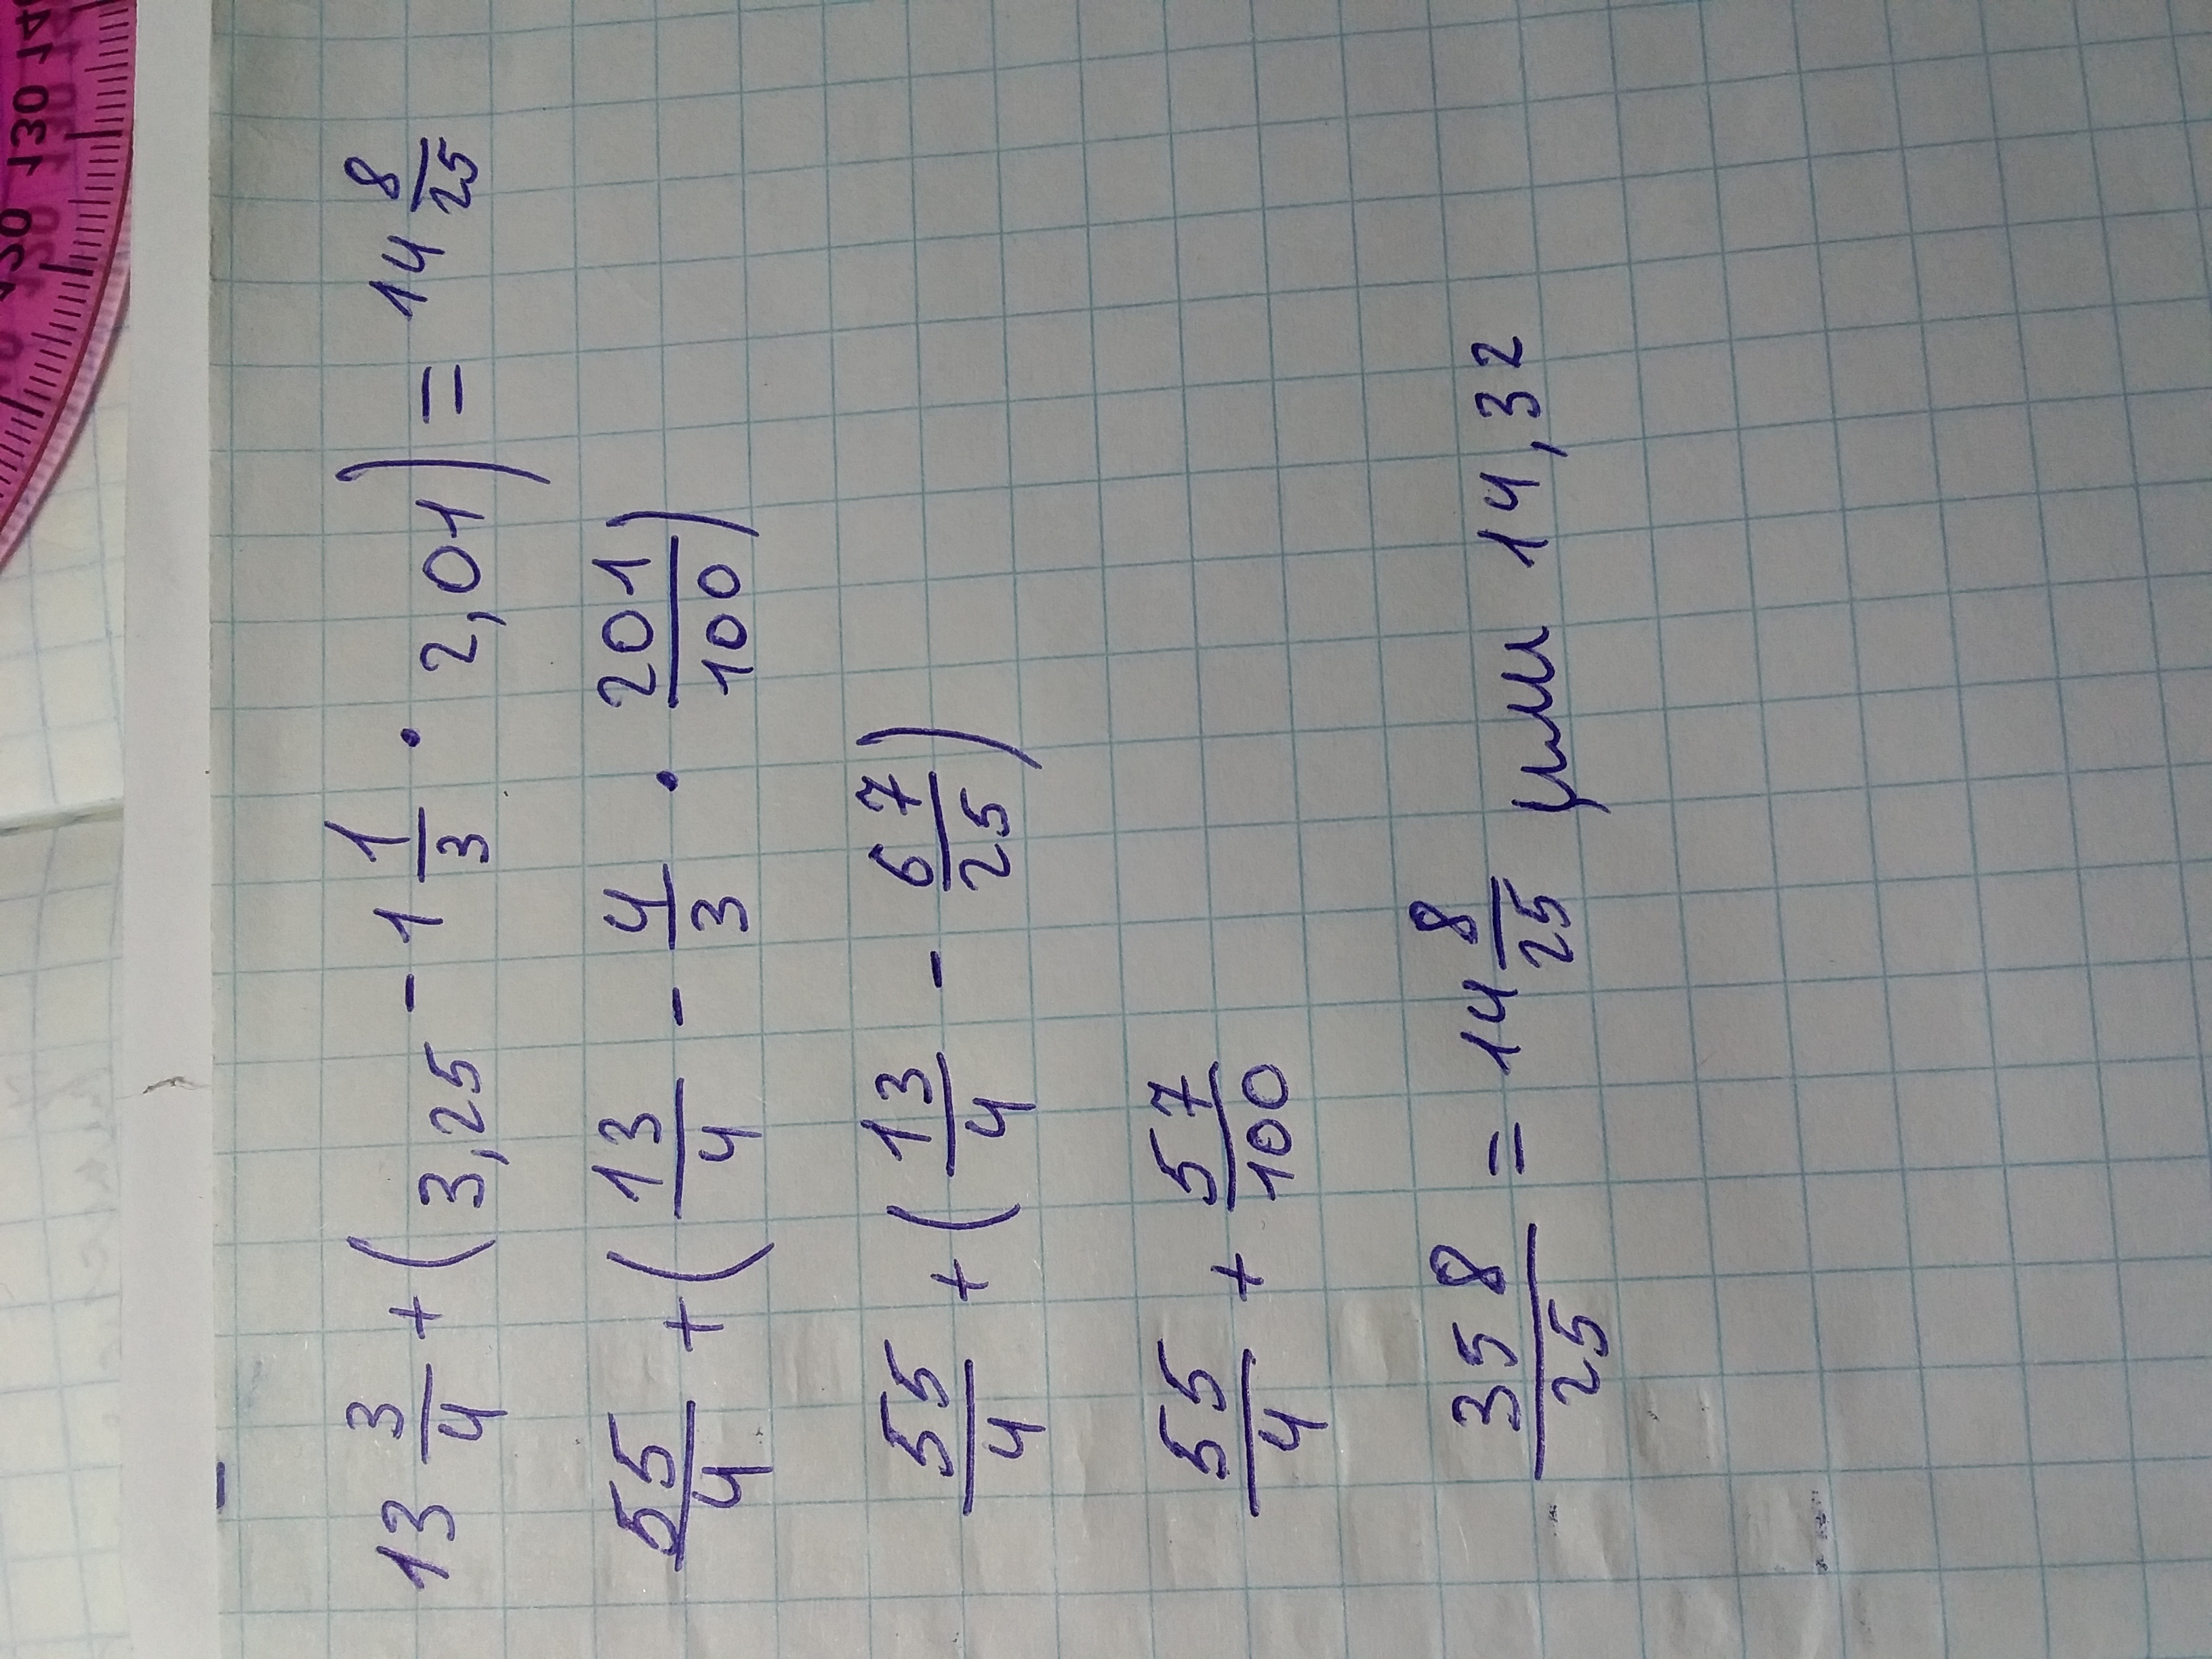 13 3/4 + (3,25 - 1 1/3 · 2,01) = 14 8/25
55/4 + (13/4 - 4/3 · 201/100)
55/4 + (13/4 - 67/25)
55/4 + 57/100
358/25 = 14 8/25 или 14,32
130 140